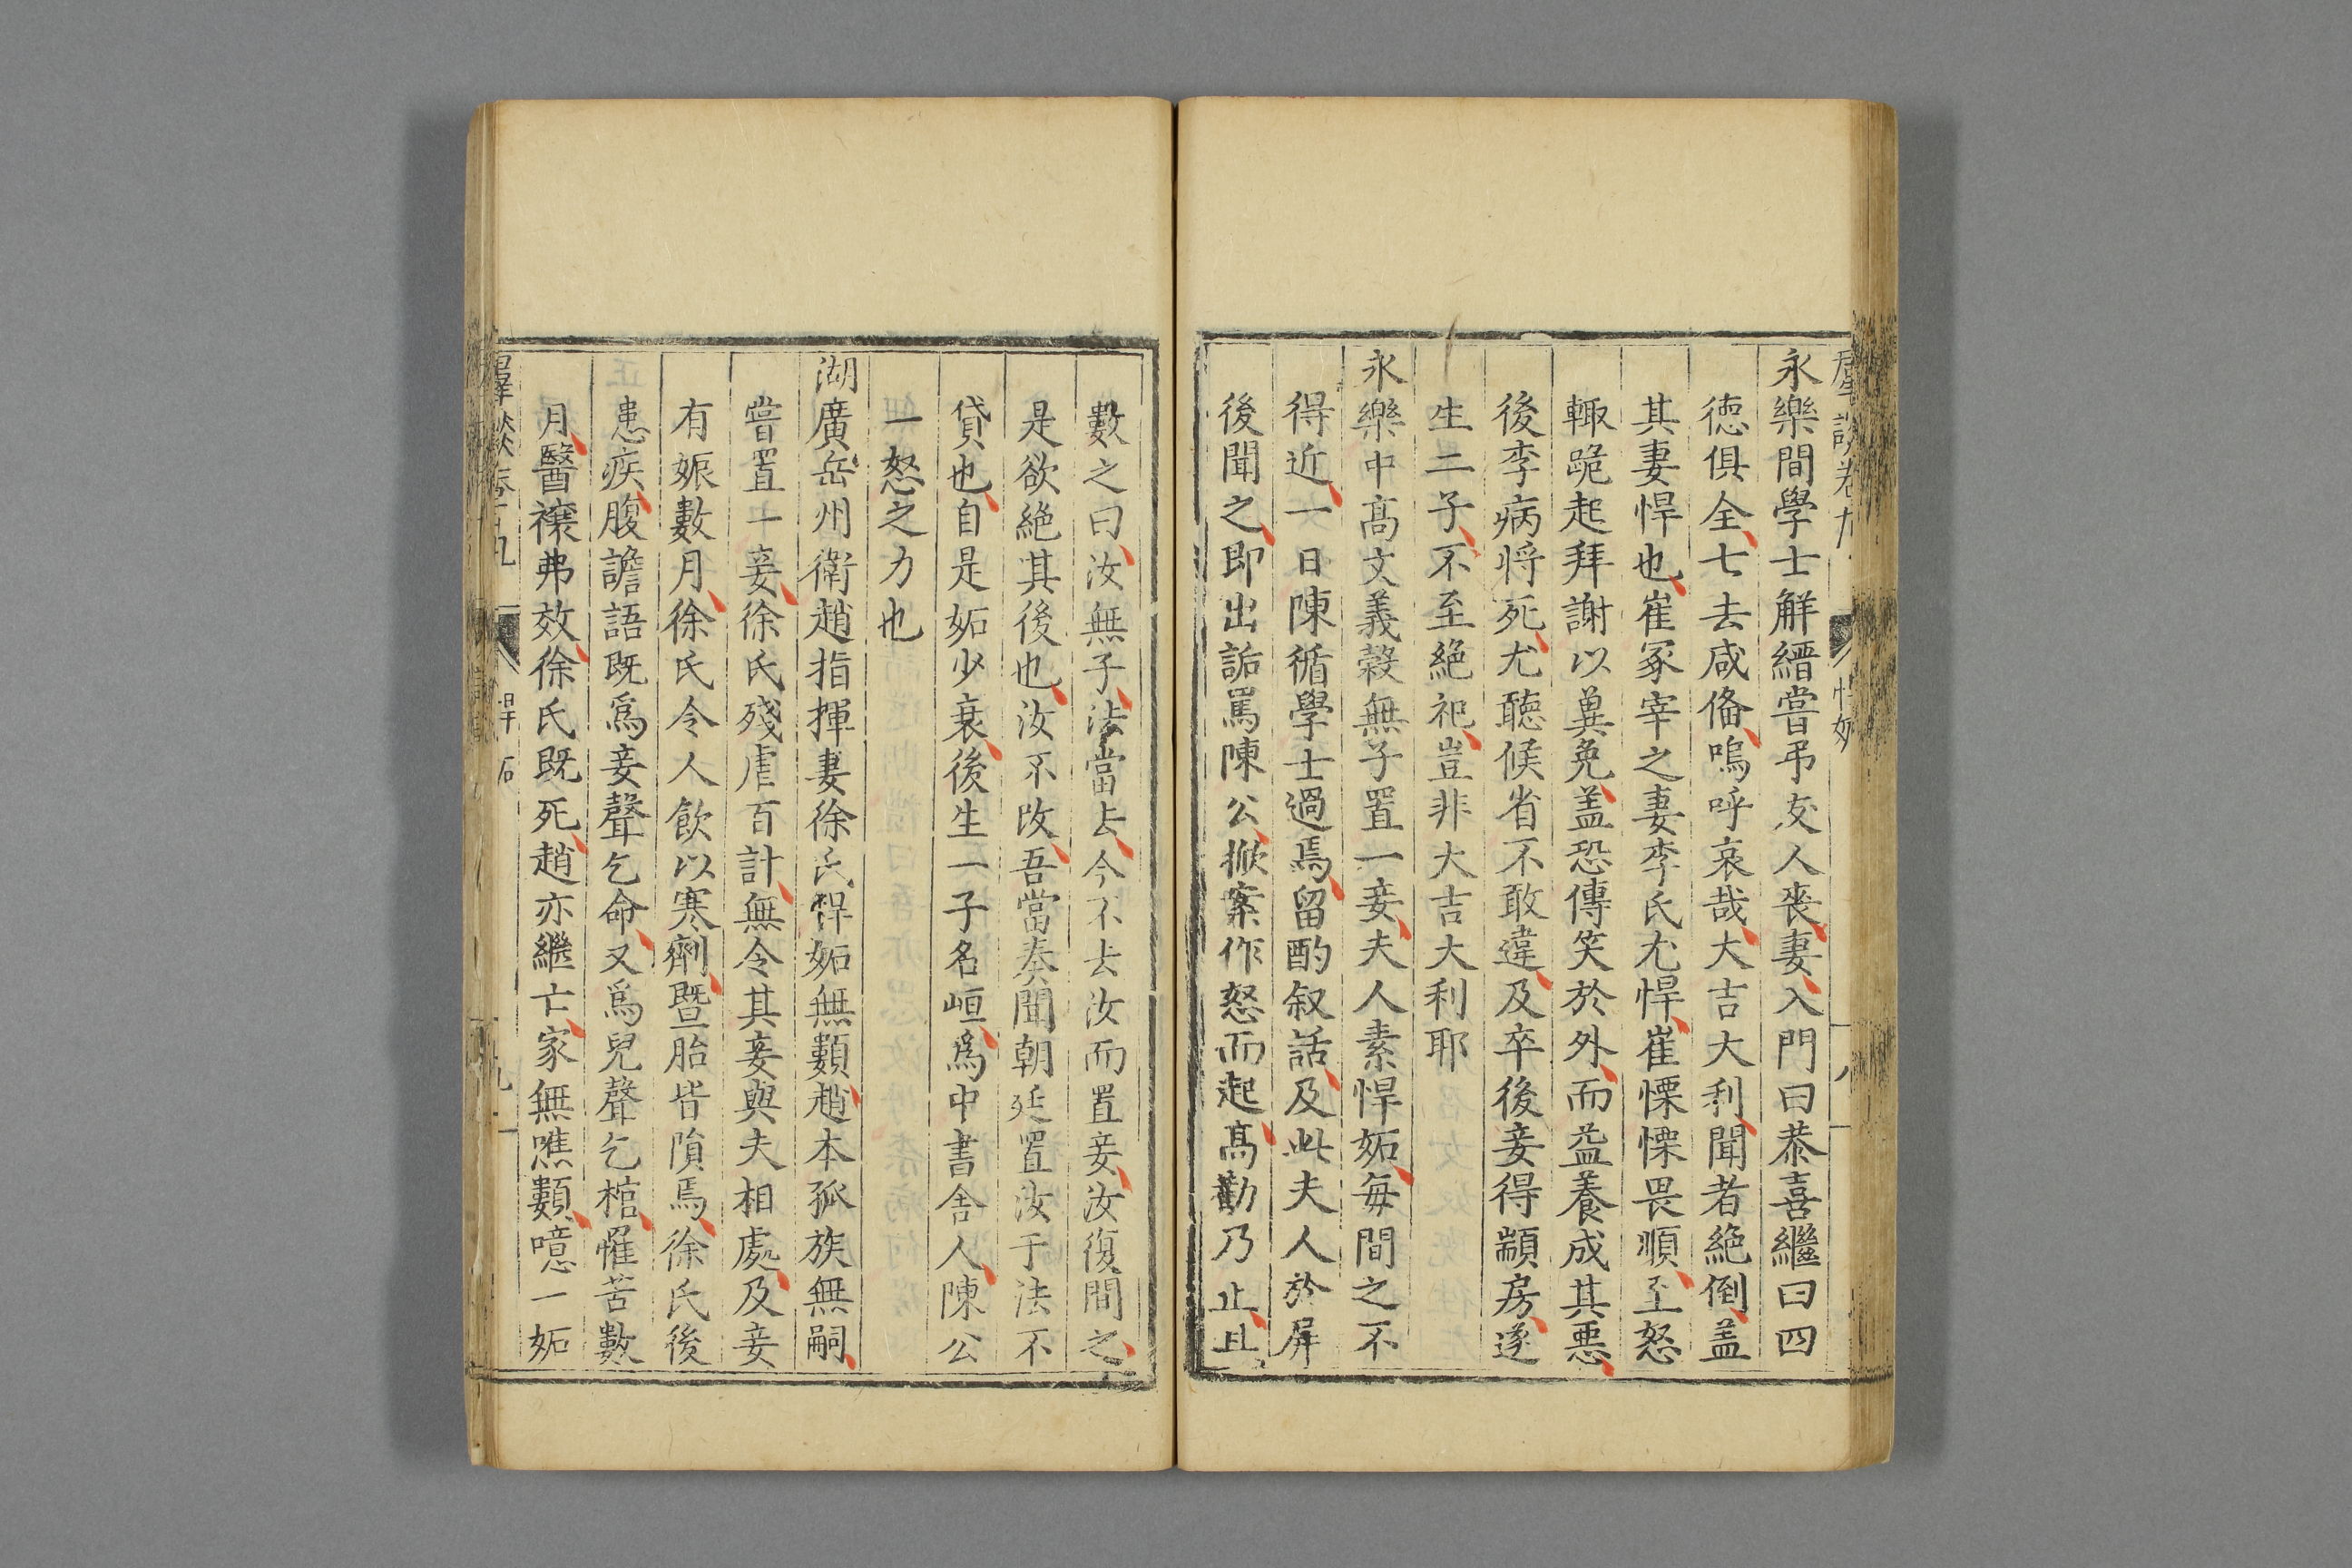 永樂間學士解縉嘗弔友人喪妻入門曰恭喜繼曰四
徳俱全七去咸俻嗚呼哀哉大吉大利聞者絕倒盖
其妻悍也崔冢宰之妻李氏尤悍崔慄慄畏順至怒
輙跪起拜謝以兾免盖恐傳笑於外而益養成其惡
後李病将死尤聽候省不敢違及卒後妾得顓房遂
生二子不至絕祀豈非大吉大利耶
永樂中髙文義榖無子置一妾夫人素悍妬每間之不
得近一日陳循學士過焉留酌叙話及此夫人於屏
後聞之即出詬罵陳公掀案作怒而起髙勸乃止且
數之曰汝無子法當去今不去汝而置妾汝復間之
是欲絕其後也汝不改吾當奏聞朝廷置汝于法不
貸也自是妬少衰後生一子名峘爲中書舍人陳公
一怒之力也
湖廣岳州衛趙指揮妻徐氏悍妬無類趙本孤族無嗣
嘗置一妾徐氏殘虐百計無令其妾與夫相處及妾
有娠數月徐氏令人飲以寒劑暨胎皆隕焉徐氏後
患疾腹譫語既爲妾聲乞命又爲兒聲乞棺罹苦數
月醫禳弗效徐氏既死趙亦繼亡家無噍類噫一妬